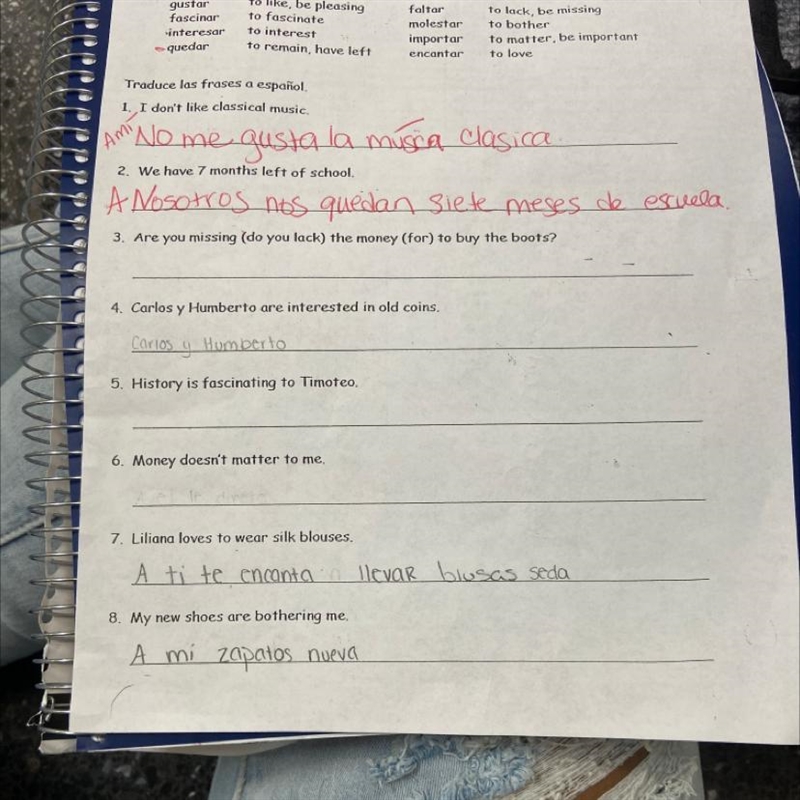 gustar to like, be pleasing faltar to lack, be missing
fascinar to fascinate molestar to bother
interesar to interest importar to matter, be important
quedar to remain, have left encantar to love
Traduce las frases a español.
1. I don't like classical music.
A mí No me gusta la música clasica.
2. We have 7 months left of school.
A Nosotros nos quedan siete meses de escuela.
3. Are you missing (do you lack) the money (for) to buy the boots?
4. Carlos y Humberto are interested in old coins.
Carlos y Humberto
5. History is fascinating to Timoteo.
6. Money doesn't matter to me.
7. Liliana loves to wear silk blouses.
A ti te encanta llevar blusas seda
8. My new shoes are bothering me.
A mi zapatos nueva